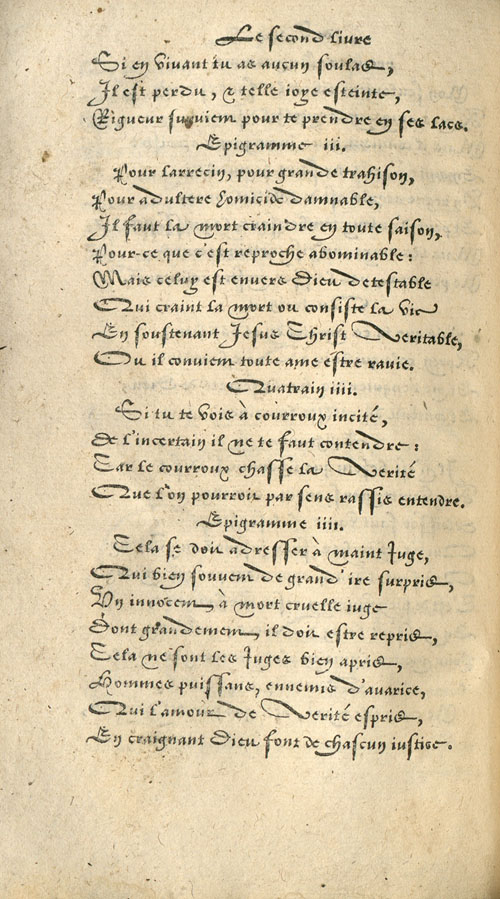 Le second livre
Si en vivant tu as aucun soulas,
Il est perdu, & telle ioye esteinte,
Rigueur survient pour te prendre en ses lacs.
Epigramme iii.
Pour larrecin, pour grande trahison,
Pour adultere homicide damnable,
Il faut la mort craindre en toute saison,
Pour-ce que c'est reproche abominable:
Mais celuy est envers Dieu detestable
Qui craint la mort ou consiste la vie
En soustenant Jesus Christ Veritable,
Ou il convient toute ame estre ravie.
Quatrain iiii.
Si tu te vois à courroux incité,
De l'incertain il ne te faut contendre:
Car le courroux chasse la Verité
Que l'on pourroit par sens rassis entendre.
Epigramme iiii.
Cela se doit adresser à maint Iuge,
Qui bien souvent de grand' ire surpris,
Vn innocent à mort cruelle iuge
Dont grandement il doit estre repris,
Cela ne font les Iuges bien apris,
Hommes puissans, ennemis d'avarice,
Qui l'amour de Verité espris,
En craignant Dieu font de chascun iustice.